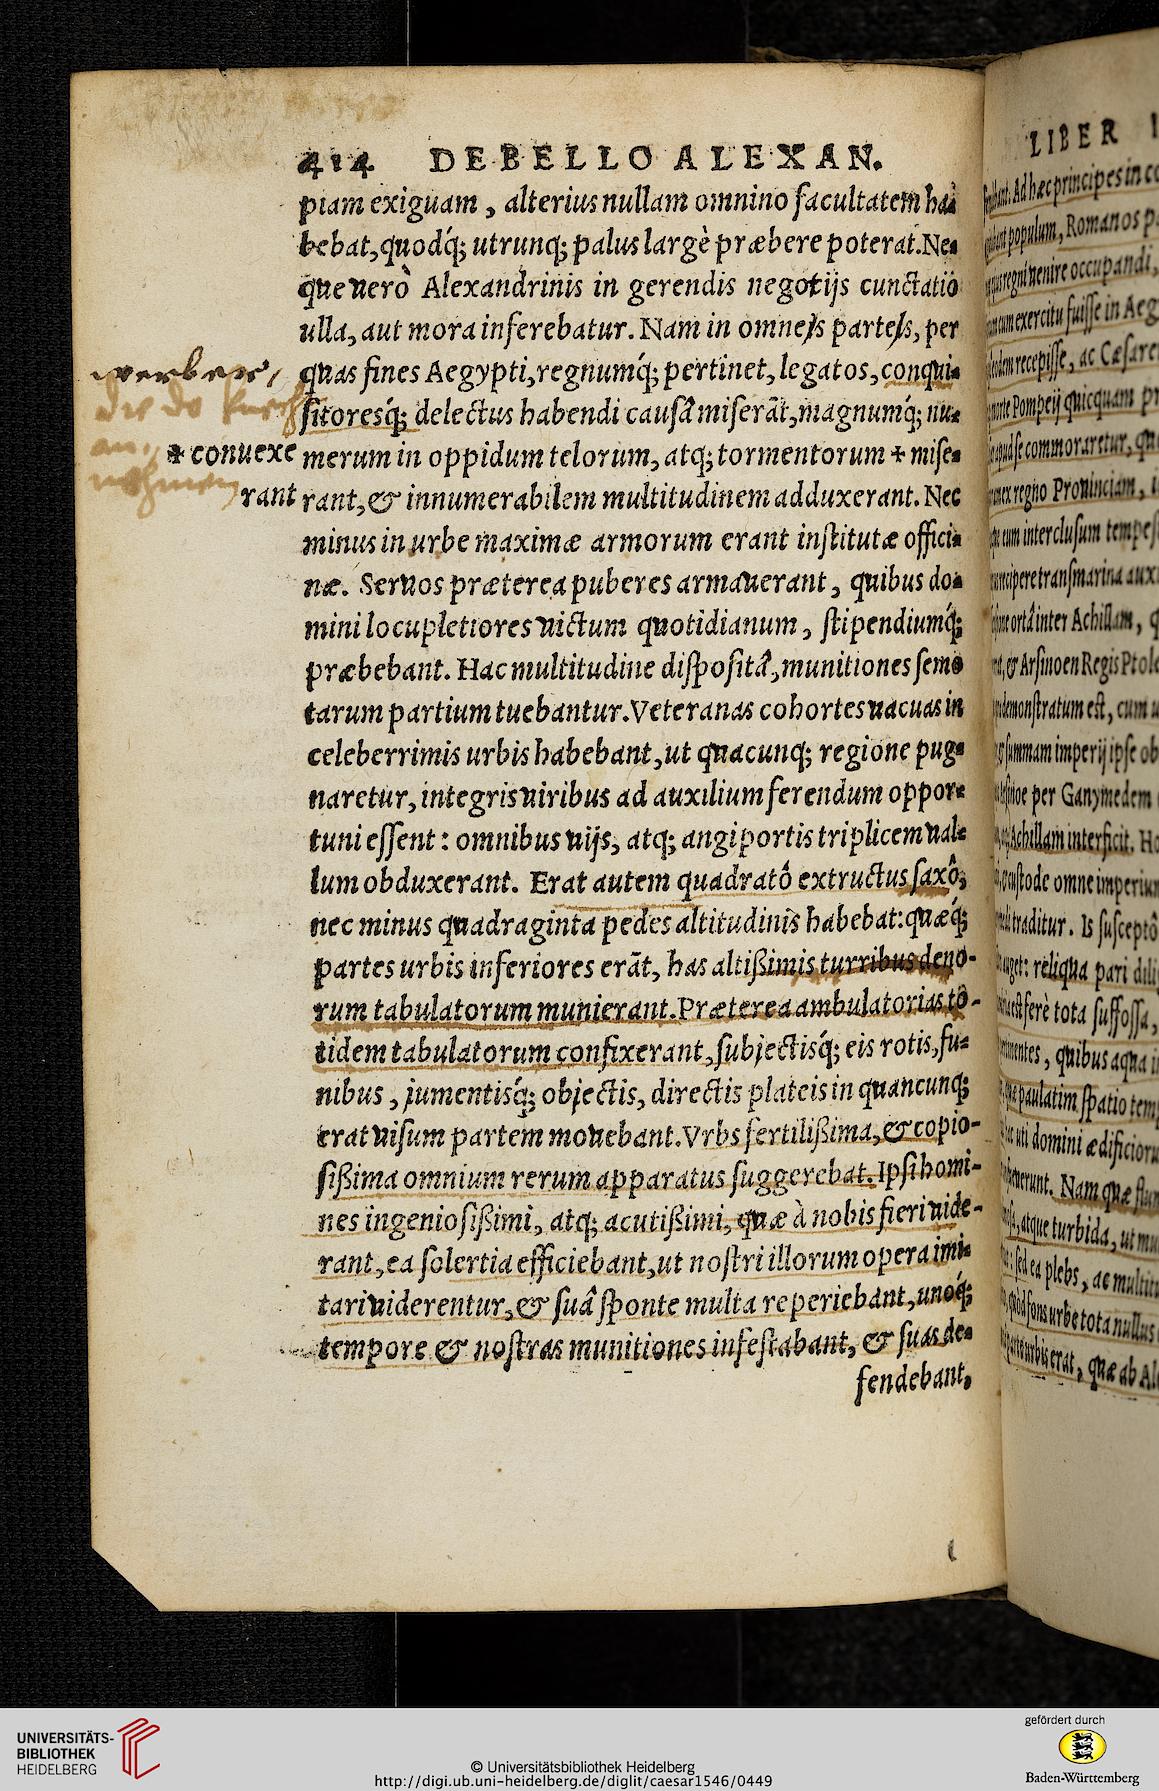 414 DE BELLO ALEXAN.
piam exiguam, alterius nullam omnino facultatem ha=
bebat, quodq́; utrunq; palus largè præbere poterat. Ne=
que uerò Alexandrinis in gerendis negotijs cunctatio
ulla, aut mora inferebatur. Nam in omneis parteis, per
werber,
quas fines Aegypti, regnumq́; pertinet, legatos, conqui=
die do
sitoresq́; delectus habendi causâ miserãt, magnumq́; nu=
an
+ conuexe
merum in oppidum telorum, atq; tormentorum + mise=
nehmen
rant
rant, & innumerabilem multitudinem adduxerant. Nec
minus in urbe maximæ armorum erant institutæ offici=
næ. Seruos præterea puberes armauerant, quibus do=
mini locupletiores uictum quotidianum, stipendiumq́;
præbebant. Hac multitudine dispositâ, munitiones semo
tarum partium tuebantur. Veteranas cohortes uacuas in
celeberrimis urbis habebant, ut quacunq; regione pug=
naretur, integris uiribus ad auxilium ferendum oppor=
tuni essent: omnibus uijs, atq; angiportis triplicem ual=
lum obduxerant. Erat autem quadratô extructus saxô,
nec minus quadraginta pedes altitudinis habebat: quæq́;
partes urbis inferiores erãt, has altißimis turribus deno-
rum tabulatorum munierant. Præterea ambulatorias to-
tidem tabulatorum confixerant, subjectisq́; eis rotis, fu=
nibus, jumentisq́; objectis, directis plateis in quancunq;
erat uisum partem mouebant. Vrbs fertilißima, & copio-
sißima omnium rerum apparatus suggerebat. Ipsi homi-
nes ingeniosißimi, atq; acutißimi, quæ à nobis fieri uide-
rant, ea solertia efficiebant, ut nostri illorum opera imi=
tari uiderentur, & suâ sponte multa reperiebant, unoq́;
tempore & nostras munitiones infestabant, & suas de=
fendebant,
LIBER
Ad hæc principes in
populum, Romanos
regni uenire occupandi,
exercitu fuisse in Aeg
recepisse, ac Cæsare
morte Pompeij quicquam
apud se commoraretur,
ex regno Prouinciam,
eum interclusum tempes
transmarina aux
ortâ inter Achillam,
& Arsinoen Regis Ptole
demonstratum est, cum
summam imperij ipse ob
per Ganymedem
Achillam interficit.
custode omne imperium
traditur. Is susceptô
auget: reliqua pari dili
est ferè tota suffossa,
quibus aqua
paulatim spatio tem
uti domini ædificioru
Nam quæ flu
atque turbida, ut
sed ea plebs, ac multitu
quòd fons urbe tota nullus
urbis erat, quæ ab Al
UNIVERSITÄTS-
BIBLIOTHEK
HEIDELBERG
© Universitätsbibliothek Heidelberg
http://digi.ub.uni-heidelberg.de/diglit/caesar1546/0449
gefördert durch
Baden-Württemberg